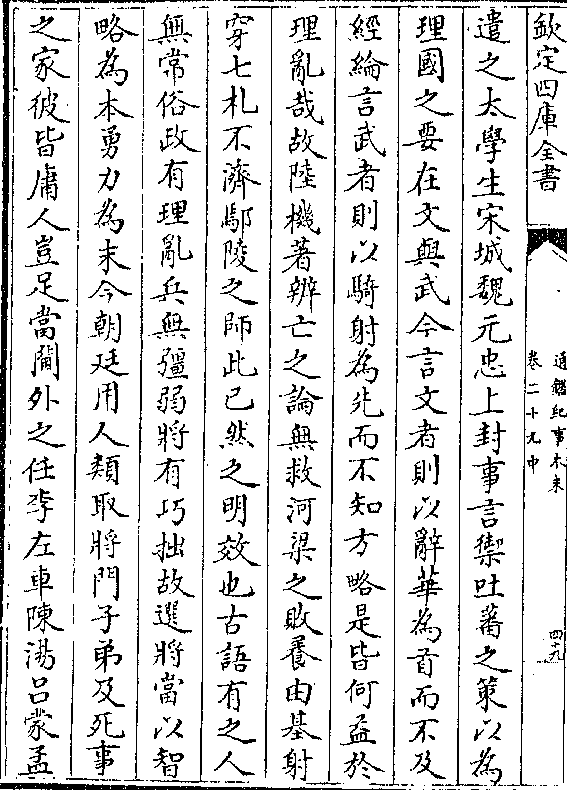 欽定四庫全書
通鑑紀事本末
卷二十九中
四十九
遣之太學生宋城魏元忠上封事言禦吐蕃之策以為
理國之要在文與武今言文者則以辭華為首而不及
經綸言武者則以騎射為先而不知方略是皆何益於
理亂哉故陸機著辨亡之論無救河梁之敗養由基射
穿七札不濟鄢陵之師此已然之明效也古語有之人
無常俗政有理亂兵無彊弱將有巧拙故選將當以智
略為本勇力為末今朝廷用人類取將門子弟及死事
之家彼皆庸人豈足當閫外之任李左車陳湯呂蒙孟